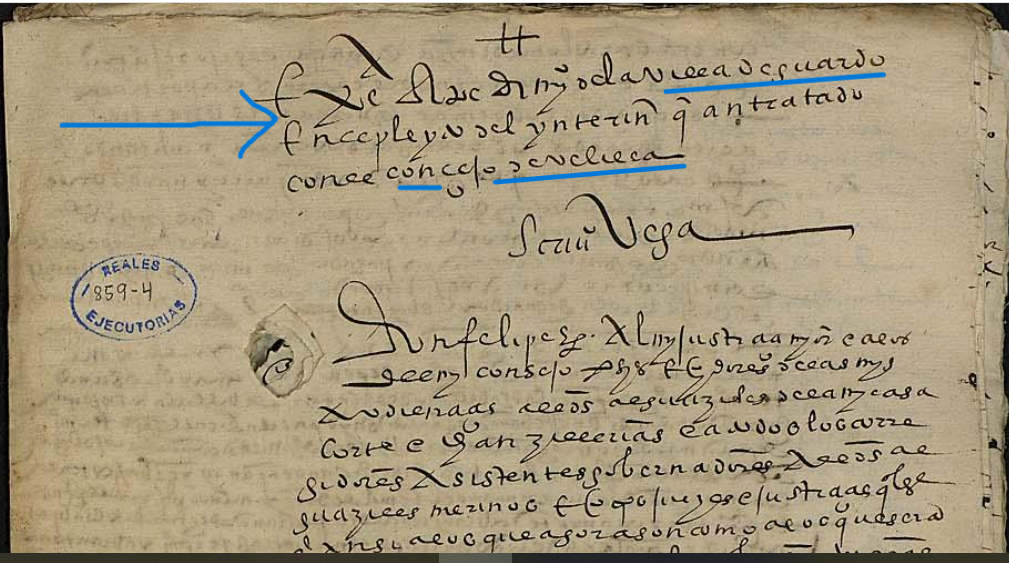 de la villa de guardo
En el pleyto del ynterin q̃ an tratado
con el concejo de velilla
Scriuº Vega
REALES
859-4
EJECUTORIAS
Don felipe &. Al my justicia mayor e a los
del my consejo presidentes e oydores de las mys
Audiencias alcaldes alguaziles de la my casa
corte e chancillerias e a todos los corre
gidores Asistentes gobernadores Alcaldes al
guaziles merinos e otros juezes e justicias qualesq̃
Ansi a los que agora son como a los que seran